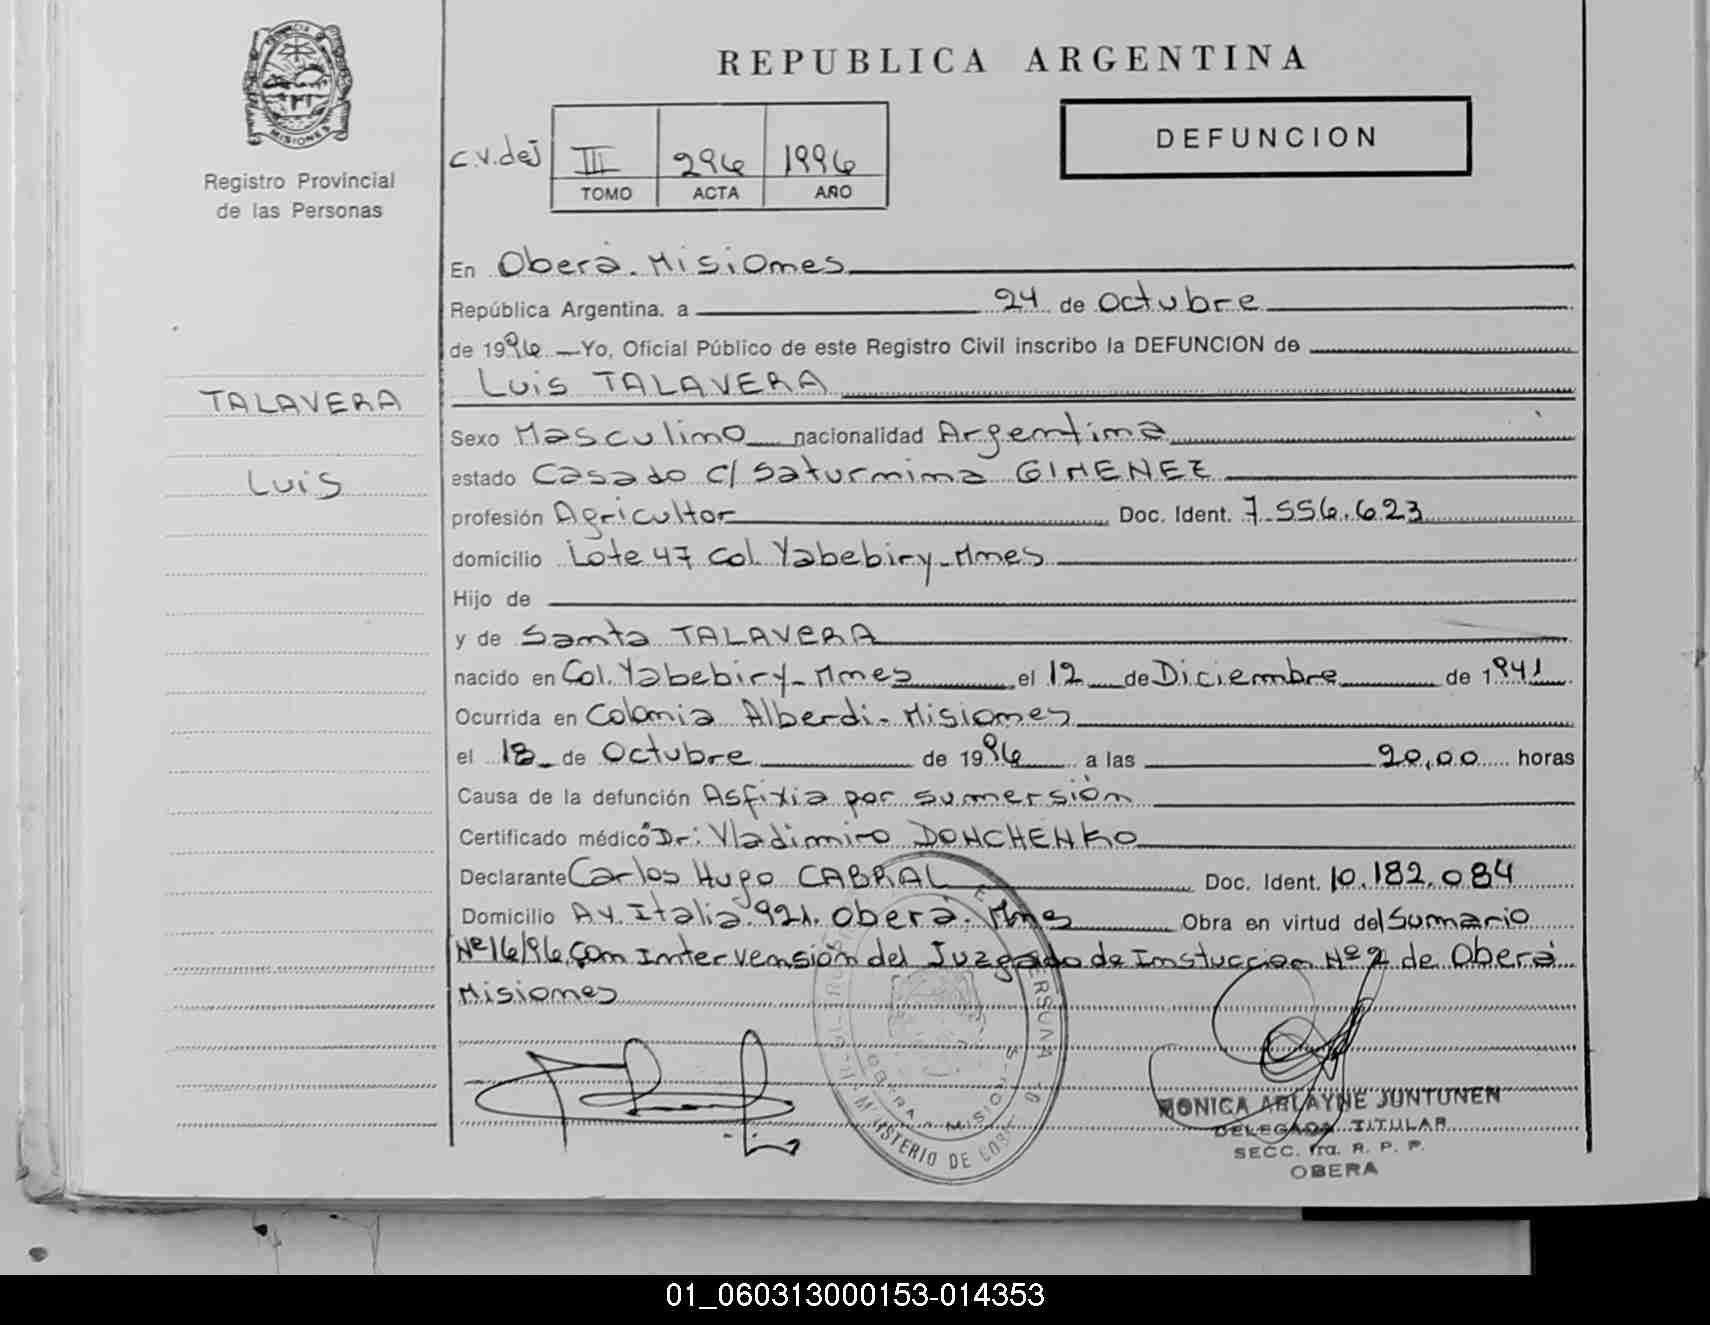 PROVINCIA DE
MISIONES
Registro Provincial
de las Personas
TALAVERA
Luis
REPUBLICA ARGENTINA
DEFUNCION
c.v.dej III 296 1996
TOMO ACTA AÑO
En Oberá. Misiones
República Argentina. a 24 de octubre
de 1996 Yo, Oficial Público de este Registro Civil inscribo la DEFUNCION de
Luis TALAVERA
Sexo Masculino nacionalidad Argentina
estado Casado c/ Saturnina GIMENEZ
profesión Agricultor Doc. Ident. 7.556.623
domicilio Lote 47 Col. Yabebiry-Mnes
Hijo de
y de Santa TALAVERA
nacido en Col. Yabebiry-Mnes el 12 de Diciembre de 1941
Ocurrida en Colonia Alberdi-Misiones
el 18 de Octubre de 1996 a las 20,00 horas
Causa de la defunción Asfixia por sumersión
Certificado médico Dr: Vladimiro DONCHENKO
Declarante Carlos Hugo CABRAL Doc. Ident. 10.182.084
Domicilio Av. Italia 921. Oberá. Mnes Obra en virtud del Sumario
Nº16/96 con Intervensión del Juzgado de Instuccion Nº2 de Oberá
Misiones
MINISTERIO DE GOB
OBERA - MISIONES
MONICA ARLAYNE JUNTUNEN
DELEGADA TITULAR
SECC. 1ra. R. P. P.
OBERA
01_060313000153-014353